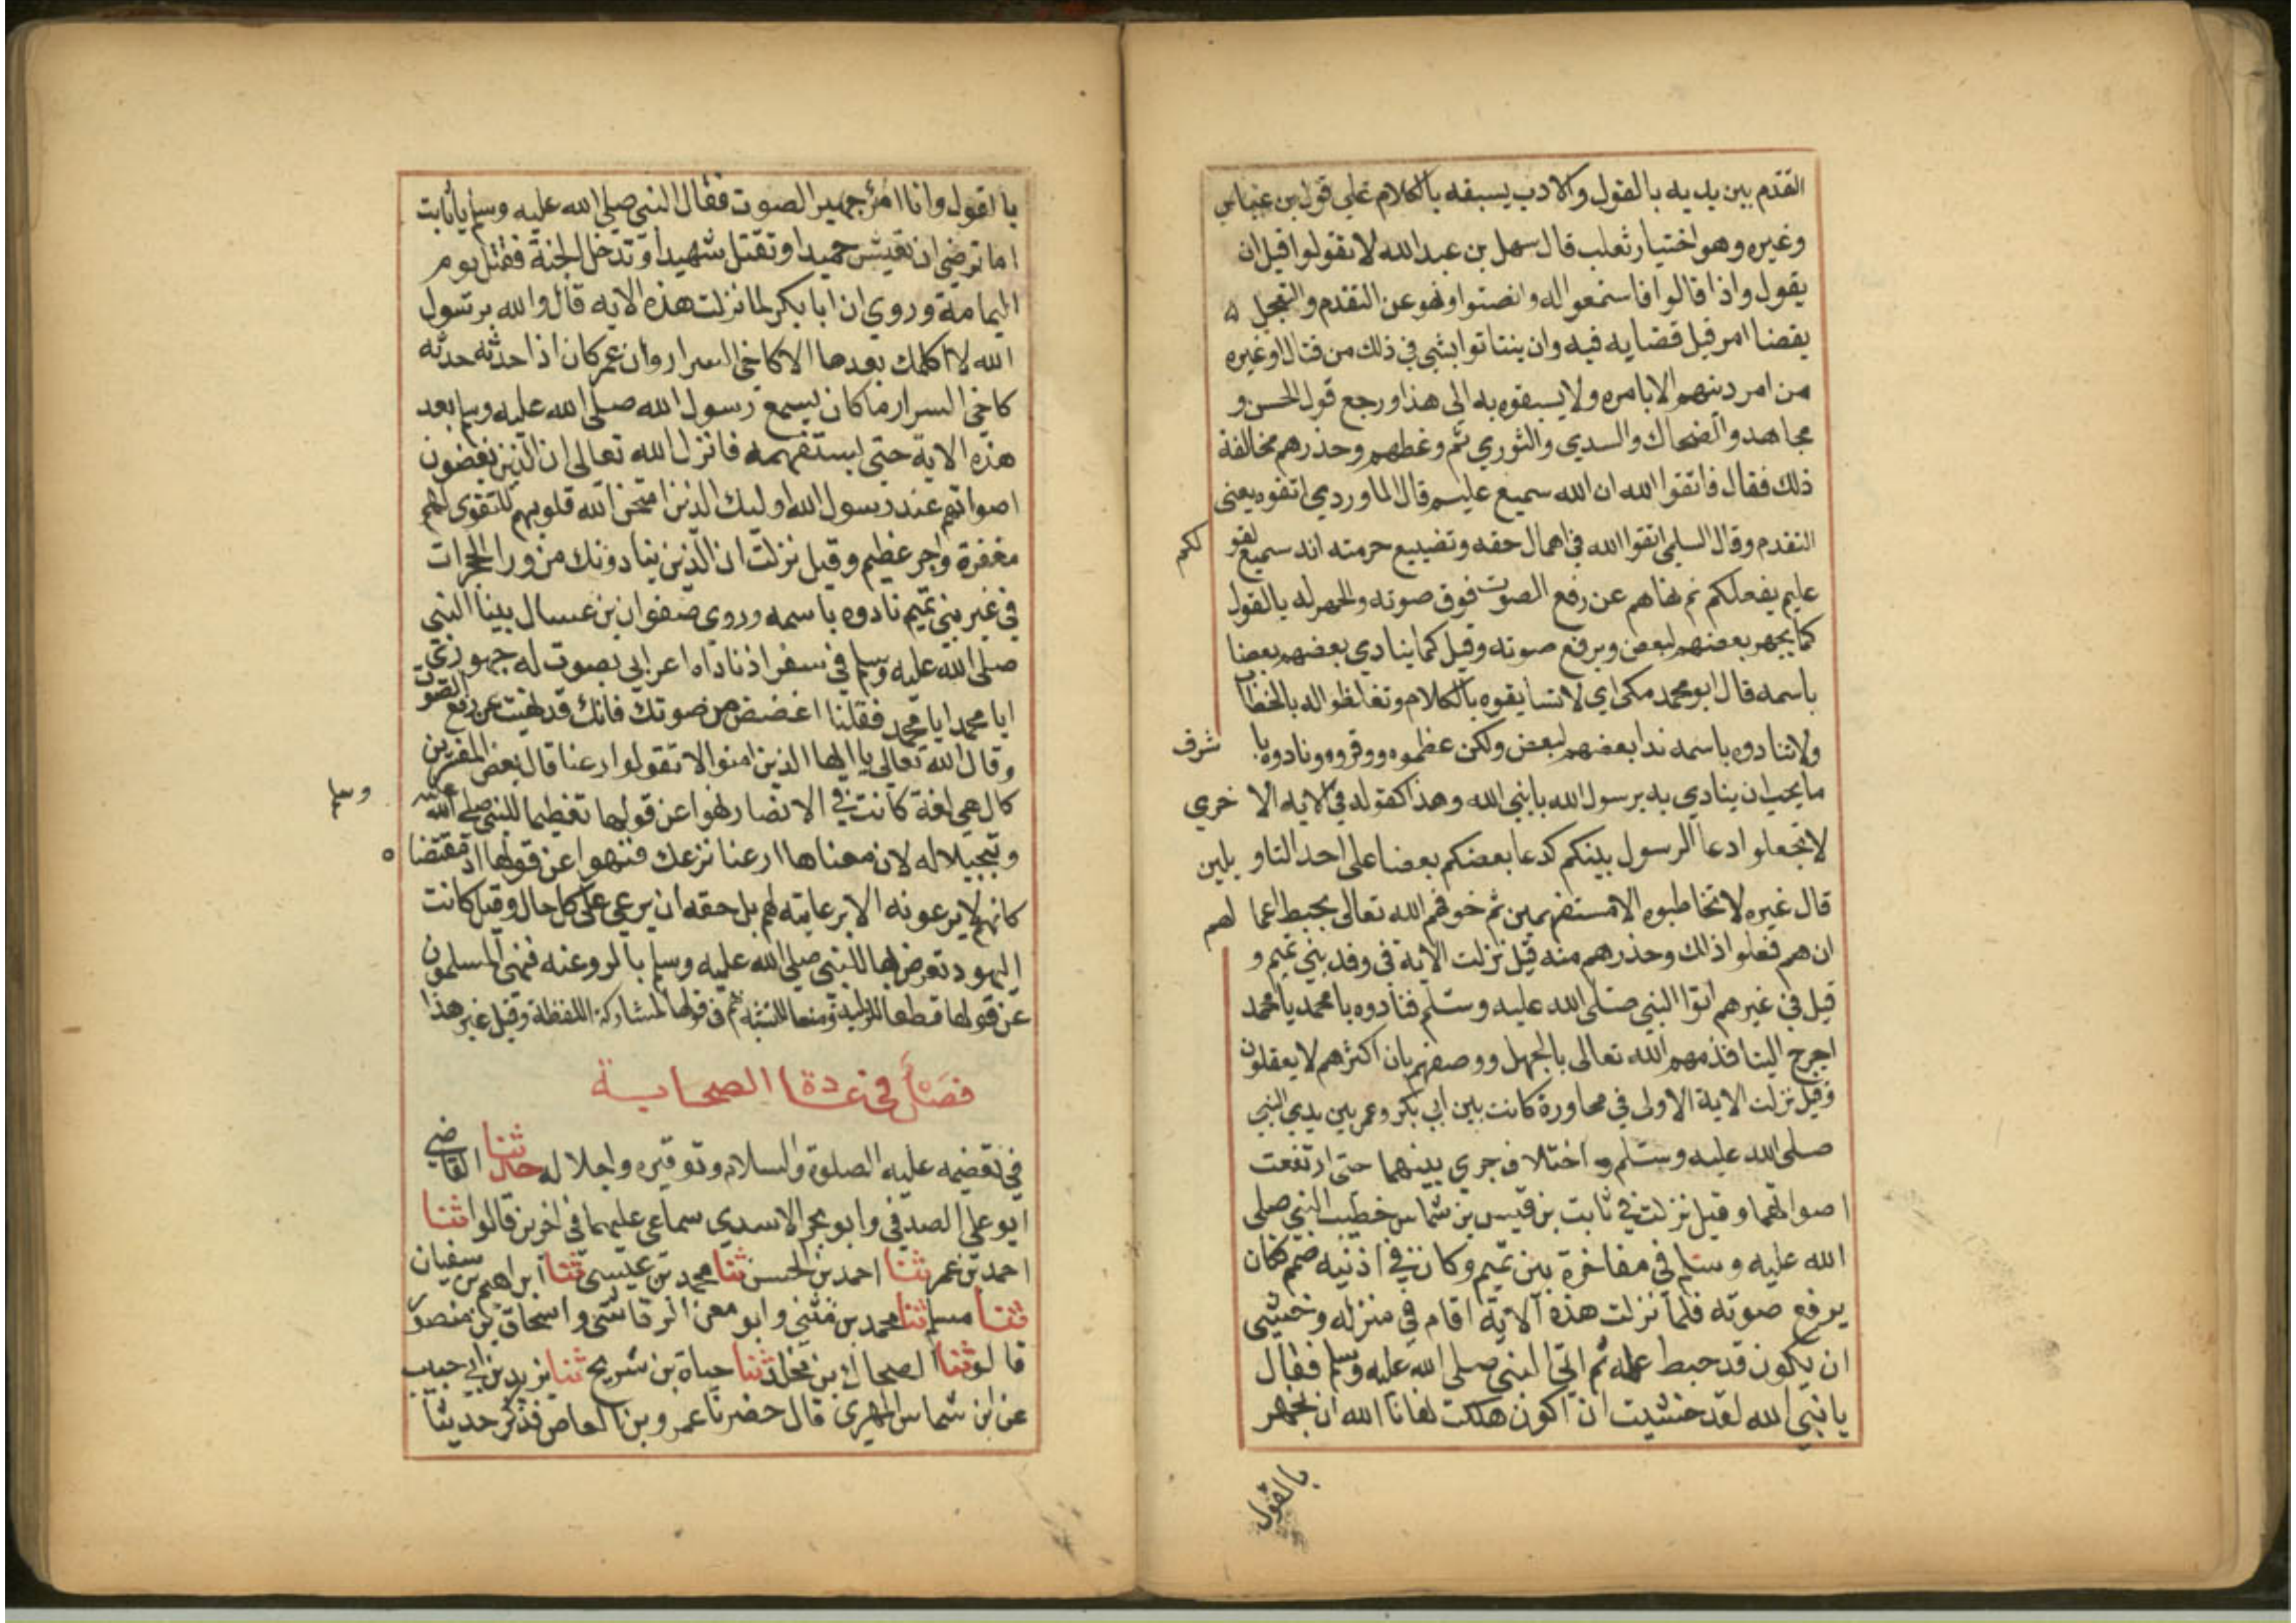 التقدم بين يديه بالقول والادب يسبقه بالكلام على قول بن عباس
وغيره وهو اختيار ثعلب قال سهل بن عبد الله لا تقولوا قبل ان
يقول واذا قالوا فاستمعوا له وانصتوا ونهو عن التقدم والتعجل ۵
يقضا امر قبل قضايه فيه وان ينتاتوا بشي في ذلك من قتال او غيره
من امر دينهم الا بامره ولا يسبقوه به الى هذا ورجع قول الحسن و
مجاهد والضحاك والسدي والثوري ثم وعظهم وحذرهم مخالفة
ذلك فقال فاتقوا الله ان الله سميع عليم قال الماوردي اتقوه يعني
التقدم وقال السلمي اتقوا الله في اهمال حقه وتضييع حرمته انه سميع لقو لكم
عليم بفعلكم ثم نهاهم عن رفع الصوت فوق صوته والجهر له بالقول
كما يجهر بعضهم لبعض ويرفع صوته وقيل كما ينادي بعضهم بعضا
باسمه قال ابو محمد مكي اي لا تسابقوه بالكلام وتغلظوا له بالخطاب
ولا تنادوه باسمه ندا بعضهم لبعض ولكن عظموه ووقروه ونادوه با شرف
ما يحب ان ينادي به يرسول الله يا نبي الله وهذا كقوله في الاية الا خري
لا تجعلوا دعا الرسول بينكم كدعا بعضكم بعضا على احد التاو يلين
قال غيره لا تخاطبوه الا مستفهمين ثم خوفهم الله تعالى بحبط اعما لهم
ان هم فعلوا ذالك وحذرهم منه قيل نزلت الاية في وفد بني تميم و
قيل في غيرهم اتوا النبي صلى الله عليه وسلم فنادوه يا محمد يا محمد
اخرج الينا فذمهم الله تعالى بالجهل ووصفهم بان اكثرهم لا يعقلون
وقيل نزلت الاية الاولى في محاورة كانت بين ابي بكر وعمر بين يدي النبي
صلى الله عليه وسلم واختلاف جري بينهما حتى ارتفعت
اصواتهما وقيل نزلت في ثابت بن قيس بن شماس خطيب النبي صلى
الله عليه وسلم في مفاخرة بني تميم وكان في اذنيه صمم فكان
يرفع صوته فلما نزلت هذه الاية اقام في منزله وخشي
ان يكون قد حبط عمله ثم اتى النبي صلى الله عليه وسلم فقال
يا نبي الله لقد خشيت ان اكون هلكت نهانا الله ان نجهر
بالقول
بالقول وانا امرؤ جهير الصوت فقال النبي صلى الله عليه وسلم يا ثابت
اما ترضى ان تعيش حميدا وتقتل شهيدا وتدخل الجنة فقتل يوم
اليمامة وروي ان ابا بكر لما نزلت هذه الاية قال والله يرسول
الله لا اكلمك بعدها الا كاخي السرار وان عمر كان اذا حدثه حدثه
كاخي السرار ما كان يسمع رسول الله صلى الله عليه وسلم بعد
هذه الاية حتى يستفهمه فانزل الله تعالى ان الذين يغضون
اصواتهم عند رسول الله اوليك الذين امتحن الله قلوبهم للتقوى لهم
مغفرة واجر عظيم وقيل نزلت ان الذين ينادونك من ورا الحجرات
في غير بني تميم نادوه باسمه وروي صفوان بن عسال بينا النبي
صلى الله عليه وسلم في سفر اذ ناداه اعرابي بصوت له جهوري
ايا محمد ايا محمد فقلنا اغضض من صوتك فانك قد نهيت عن رفع الصوت
وقال الله تعالى يا ايها الذين امنوا لا تقولوا راعنا قال بعض المفسرين
كال هي لغة كانت في الانصار نهوا عن قولها تعظيما للنبي صلى الله عليه وسلم
وتبجيلا له لان معناها ارعنا نرعك فنهوا عن قولها اذ مقتضا ه
كانهم لا يرعونه الا برعايته لهم بل حقه ان يرعى على كل حال وقيل كانت
اليهود تعرض بها للنبي صلى الله عليه وسلم بالروعنه فنهى المسلمون
عن قولها قطعا للذريعة ومنعا للتشبه بهم في قولها لمشاركة اللفظة وقيل غير هذا
فصل في عادة الصحابة
في تعضيمه عليه الصلوة والسلام وتوقيره واجلاله حدثنا القاضي
ابو علي الصدفي وابو بحر الاسدي سماعي عليهما في اخرين قالوا ثنا
احمد بن عمر ثنا احمد بن الحسن ثنا محمد بن عيسى ثنا ابراهيم بن سفيان
ثنا مسلم ثنا محمد بن مثنى وابو معن الرقاشي واسحاق بن منصور
قالو ثنا الضحاك بن مخلد ثنا حياة بن شريح ثنا يزيد بن ابي حبيب
عن ابن شماس المهري قال حضرنا عمرو بن العاص فذكر حديثا